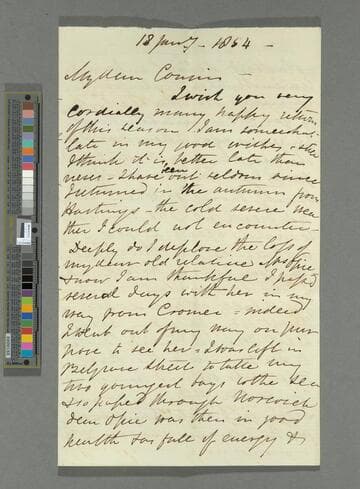 18 Jany - 1854 -
My dear Cousin -
I wish you very
cordially many happy returns
of this season I am somewhat
late in my good wishes - still
I think it is better late than
never - I have been out seldom since
I returned in the autumn from
Hastings - the cold severe wea
ther I could not encounter -
Deeply do I deplore the loss of
my dear old relative Mrs Opie
& now I am thankful I passed
several days with her in my
way from Cromer - indeed
I went out of my way on pur
pose to see her - I was left in
Belgrave Street to take my
two youngest boys to the Sea
& I stopped through Norwich
dear Opie was then in good
health & as full of energy &